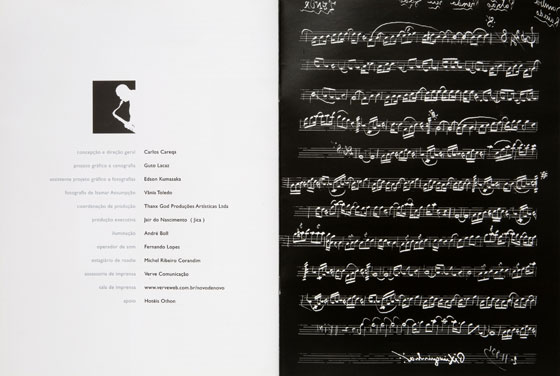 concepção e direção geral Carlos Careqa
projeto gráfico e cenografia Guto Lacaz
assistente projeto gráfico e fotografias Edson Kumasaka
fotografia de Itamar Assumpção Vânia Toledo
coordenação de produção Thanx God Produções Artísticas Ltda
produção executiva Jair do Nascimento ( Jica )
iluminação André Boll
operador de som Fernando Lopes
estagiário de Michel Ribeiro Corandim
assessoria de imprensa Verve Comunicação
sala de imprensa www.verveweb.com.br/novodenovo
apoio Hotéis Othon
Pixinguinha